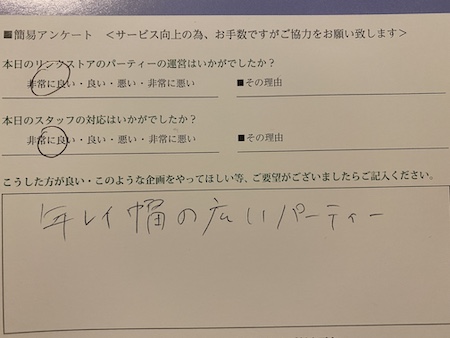 ■簡易アンケート ＜サービス向上の為、お手数ですがご協力をお願い致します＞
本日のリンクストアのパーティーの運営はいかがでしたか？
非常に良い・良い・悪い・非常に悪い ■その理由
本日のスタッフの対応はいかがでしたか？
非常に良い・良い・悪い・非常に悪い ■その理由
こうした方が良い・このような企画をやってほしい等、ご要望がございましたらご記入ください。
年レイ幅の広いパーティー